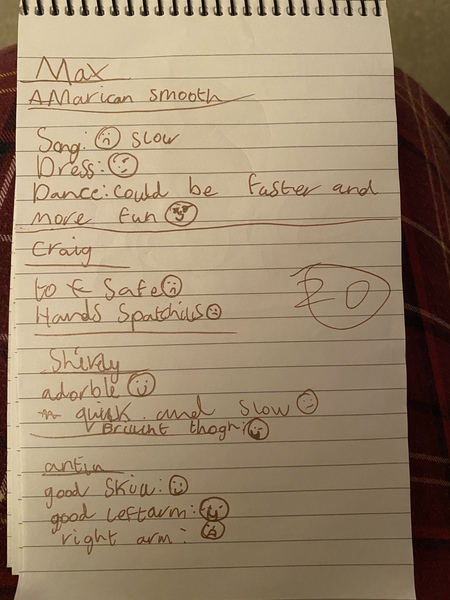 Max
AMarican smooth
Song: slow
Dress:
Dance: could be faster and
more fun
Craig
to Safe
Hands Spatchilis
20
Shirely
adorble
quick and slow
Brillint thogh
antin
good Skill:
good leftarm:
right arm: